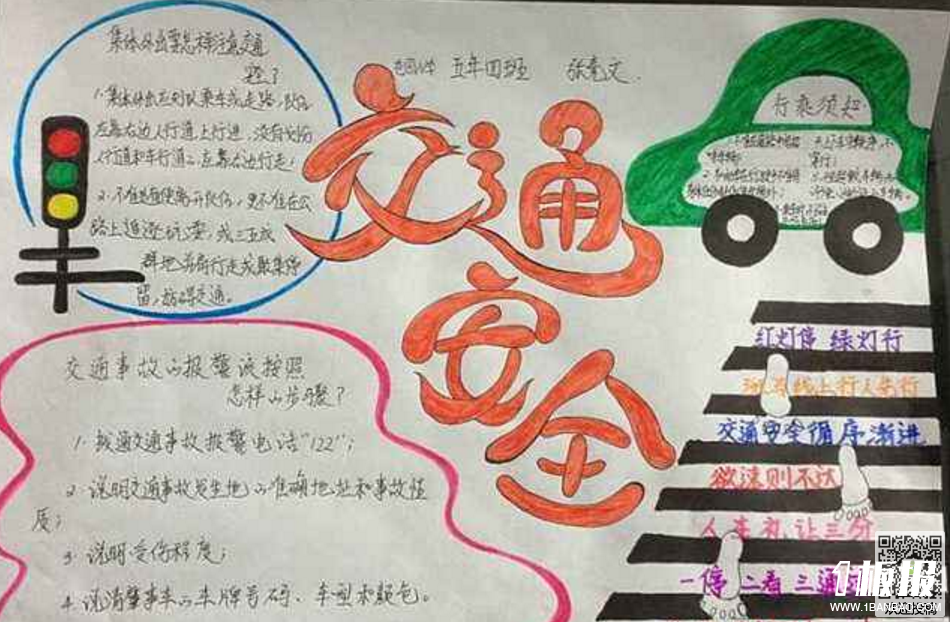 集体外出要怎样注意交通
题？
1.集体外出应列队乘车或走路，队伍
应靠右边人行道上行进，没有划分
人行道和车行道，应靠右边行走；
2.不准随便离开队伍，更不准在公
路上追逐玩耍，或三五成
群地并肩行走或聚集停
留，妨碍交通。
五年四班
交通
安
全
行乘须知
交通事故的报警该按照
怎样的步骤？
1.拨通交通事故报警电话"122"；
2.说明交通事故发生地的准确地址和事故性
质；
3.说明受伤程度；
4.说清肇事车的车牌号码、车型和颜色。
红灯停 绿灯行
线上行人先行
交通安全循序渐进
欲速则不达
人车礼让三分
一停 二看 三通
1板报
WWW.1BANBAO.COM